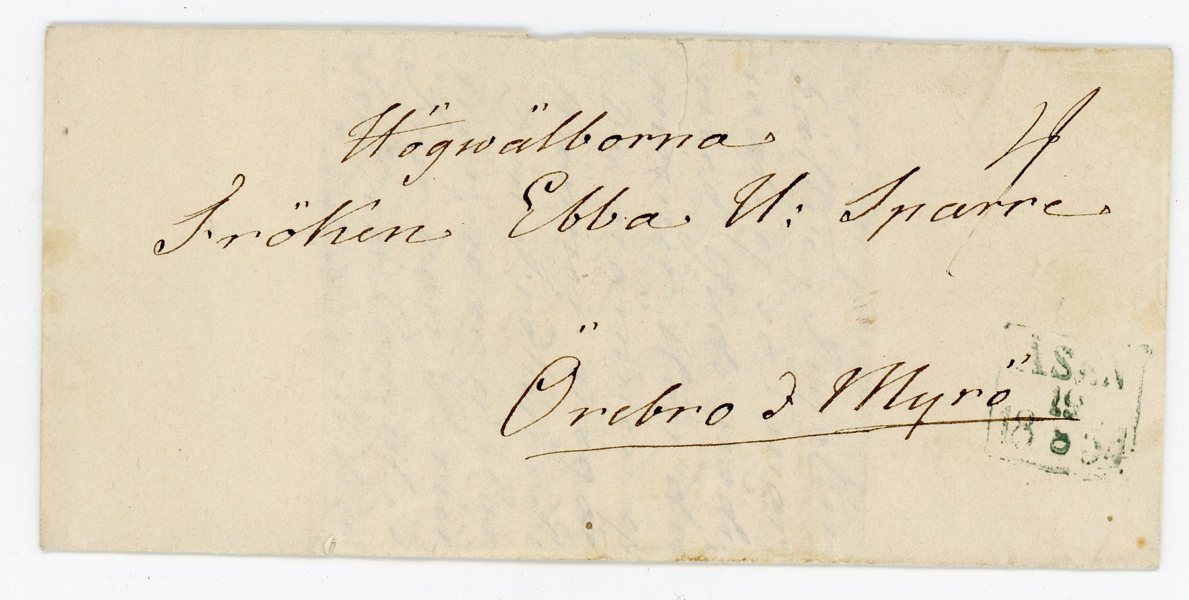 Högwälborna
Fröken Ebba U: Sparre
Örebro & Myrö
ÅSEN
19
18 8 54